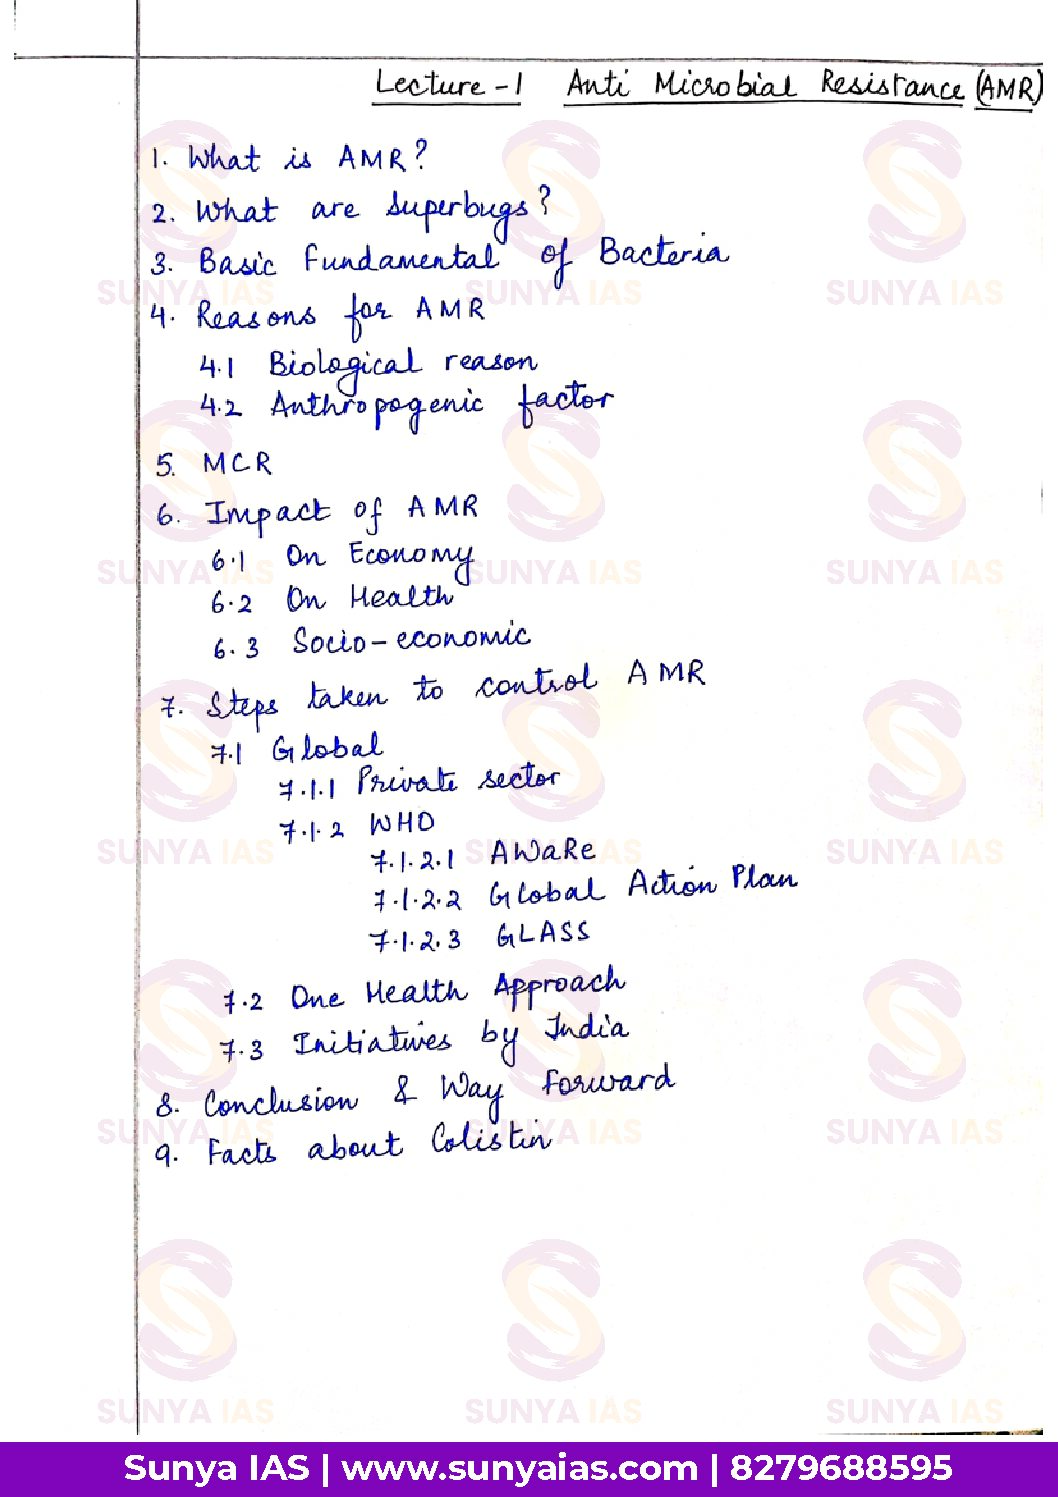 Lecture - 1 Anti Microbial Resistance (AMR)
1. What is AMR?
2. What are Superbugs?
3. Basic Fundamental of Bacteria
4. Reasons for AMR
4.1 Biological reason
4.2 Anthropogenic factor
5. MCR
6. Impact of AMR
6.1 On Economy
6.2 On Health
6.3 Socio-economic
7. Steps taken to control AMR
7.1 Global
7.1.1 Private sector
7.1.2 WHO
7.1.2.1 AWaRe
7.1.2.2 Global Action Plan
7.1.2.3 GLASS
7.2 One Health Approach
7.3 Initiatives by India
8. Conclusion & Way Forward
9. Facts about Colistin
SUNYA IAS SUNYA IAS SUNYA IAS
SUNYA IAS SUNYA IAS SUNYA IAS
SUNYA IAS SUNYA IAS SUNYA IAS
SUNYA IAS SUNYA IAS SUNYA IAS
SUNYA IAS SUNYA IAS SUNYA IAS
Sunya IAS | www.sunyaias.com | 8279688595